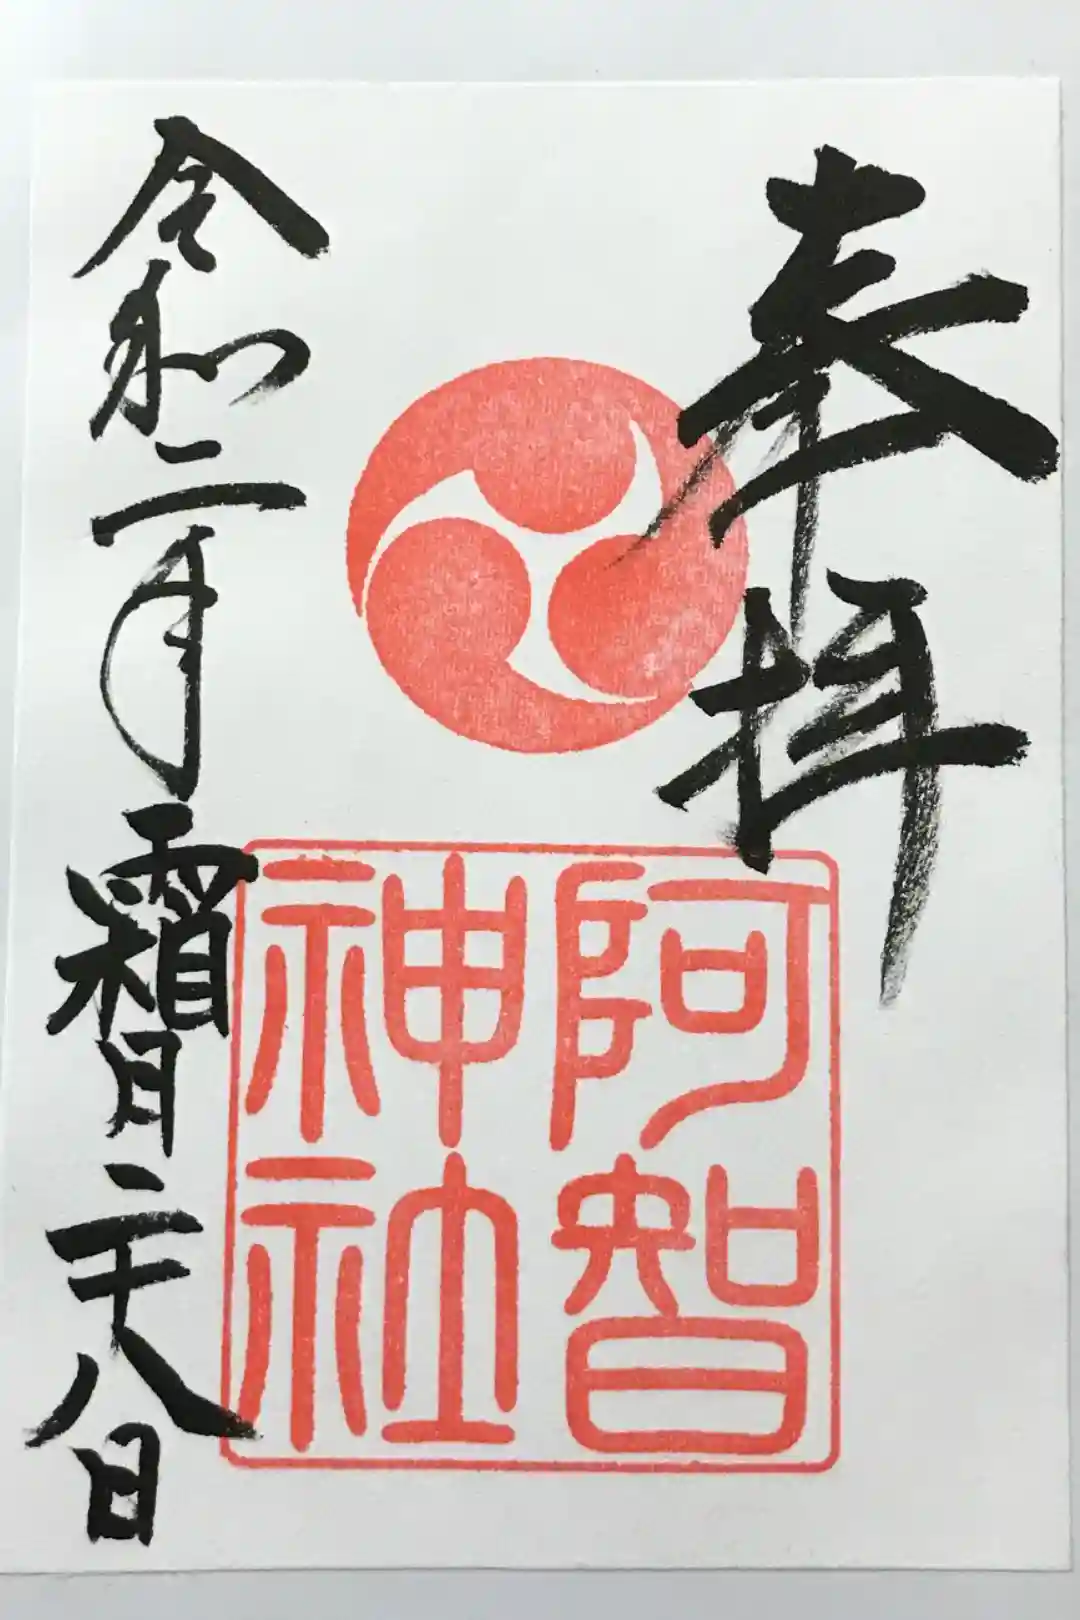 奉拝
阿智
神社
令和二年霜月二十八日